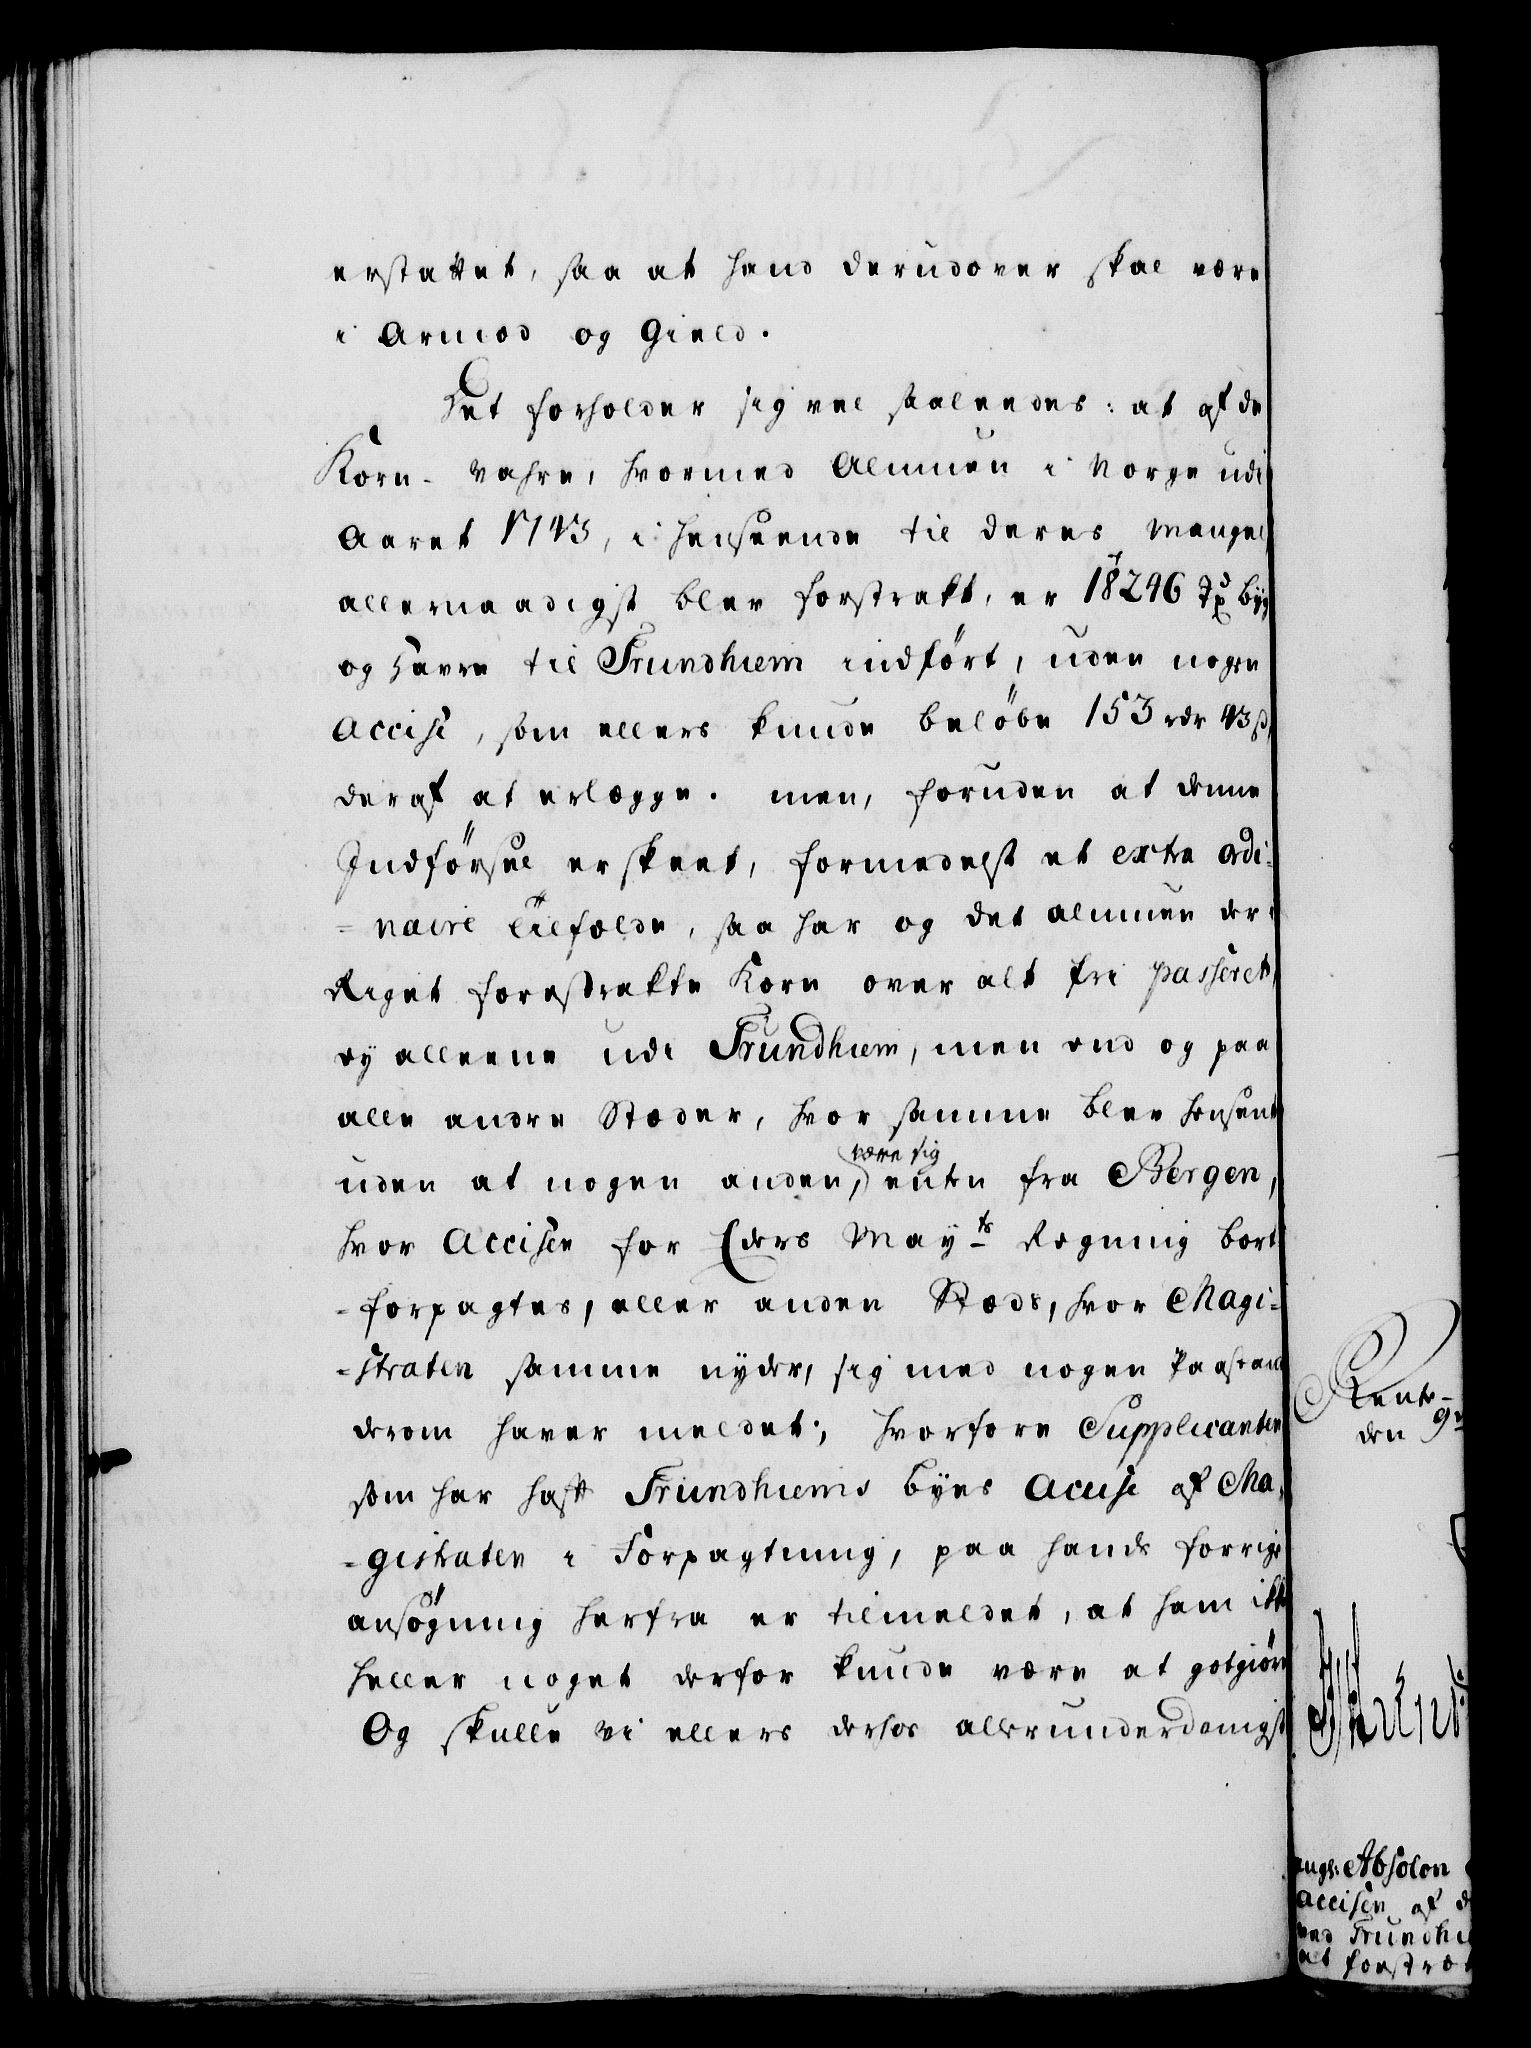 erstattet, saa at hand derudover skal være
i Armod og Gield.
Det forholder sig vel saaleedes: at af de
Korn- Vahre, hvormed Almuen i Norge udi
Aaret 1743, i henseende til deres Mangel
allernaadigst blev forstrakt, er 18246 Tdr Byg
og Havre til Trundhiem indført, uden nogen
Accise, som ellers kunde beløbe 153 rdr 43 ß,
deraf at erlægge. men, foruden at denne
Indførsel er skeet, formedelst et extra ordi=
=naire Tilfælde, saa har og det almuen der i
Riget forestrakte Korn over alt fri passeret,
ey alleene udi Trundhiem, men end og paa
alle andre Stæder, hvor samme blev hensendt
uden at nogen anden, være sig enten fra Bergen,
hvor Accisen for Eders Mayts Regning bort
=forpagtes, eller anden Stæds, hvor Magi=
=straten samme nyder, sig med nogen Paastand
derom haver meldet; hvorfore Supplicanten
som har haft Trundhiems Byes Accise af Ma=
=gistraten i Forpagtning, paa hands forrige
ansøgning herfra er tilmeldet, at ham ikke
heller noget derfor kunde være at gotgiøre
Og skulle vi ellers derhos allerunderdanigst
Rente-
den 9
Absolon
Accisen af d
ved Trundhi
at forstræ